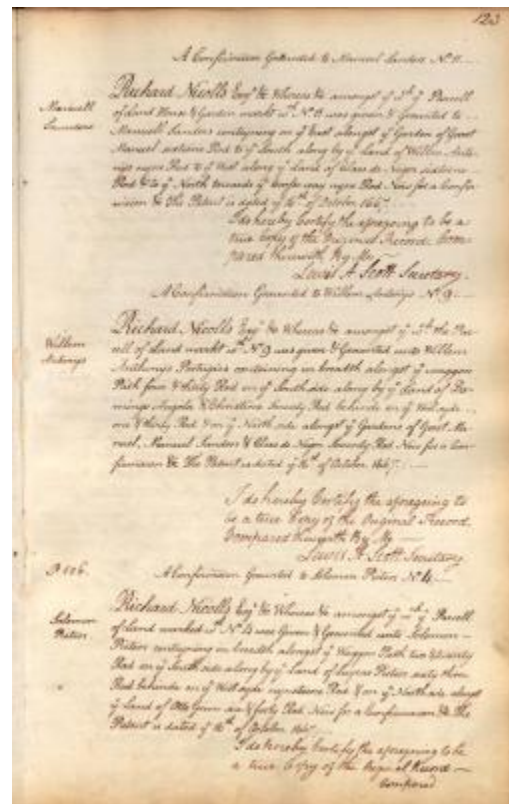 123
A Confirmation Granted to Manuel Sanders No 11.
Manuell
Sanders
Richard Nicolls Esqr &c Whereas &c amongst ye ye Parcell
of Land House & Garden markt wth No 11 was given & Granted to
Manuell Sanders containing on ye East alongst ye Garden of Groot
Manuel sixteene Rod to ye South along by ye Land of Willem Anto-
nys Rod to ye West along ye Land of Claes de Neger sixteene
Rod & to ye North towards ye way Rod Now for a Confir-
mation &c The Patent is dated ye 16th of October 1667.
I do hereby Certify the aforegoing to be a
true Copy of the Original Record Com-
pared therewith By Me
Lewis A Scott Secretary.
A Confirmation Granted to Willem Antonys No 9.
Willem
Antonys
Richard Nicolls Esqr &c Whereas &c amongst ye the Par-
cell of Land markt wth No 9 was given & Granted unto Willem
Anthonys Portugies containing in breadth alongst ye waggon
Path four & thirty Rod on ye South side along by ye Land of Do-
mingo Angola & Christina Seventy Rod behinde on ye West syde
one & thirty Rod & on ye North side alongst ye Gardens of Groot Ma-
nuel, Manuel Sanders & Claes de Neger Seventy Rod Now for a Con-
firmation &c The Patent is dated ye 16th of October 1667.
I do hereby Certify the aforegoing to
be a true Copy of the Original Record
Compared therewith By Me
Lewis A Scott Secretary
P. 106.
A Confirmation Granted to Solomon Pieters No 4.
Solomon
Pieters
Richard Nicolls Esqr &c Whereas &c amongst ye ye Parcell
of Land marked wth No 4 was Given & Granted unto Solomon
Pieters containing in breadth alongst ye Waggon Path two & twenty
Rod on ye South side along by ye Land of Pieters sixty three
Rod behinde on ye West syde Rod & on ye North side alongst
ye Land of Otto Grim & forty Rod Now for a Confirmation &c The
Patent is dated ye 16th of October 1667
I do hereby Certify the aforegoing to be
a true Copy of the Original Record
Compared